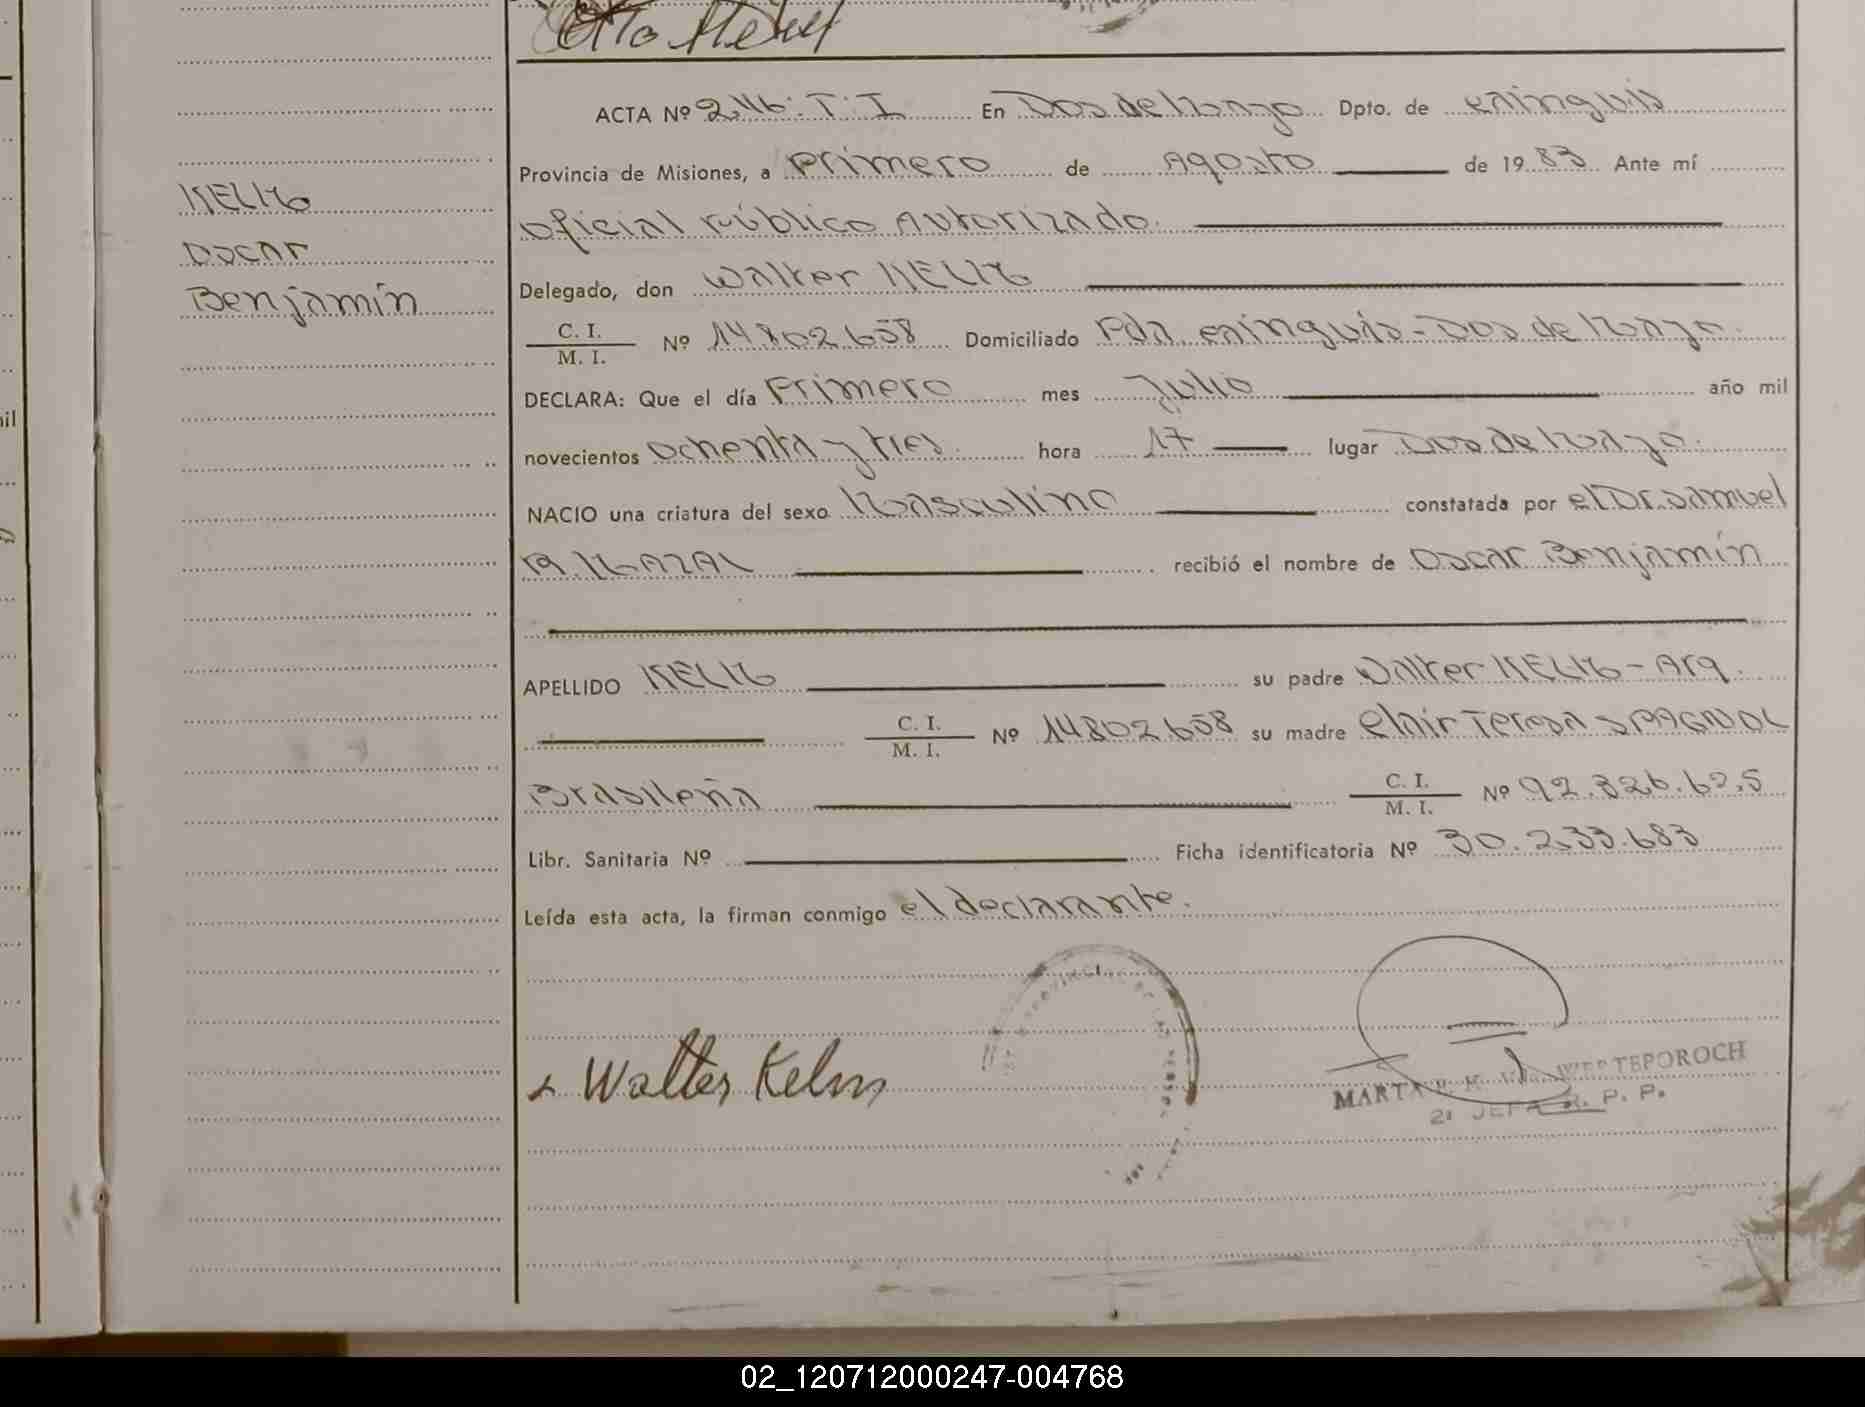 ACTA Nº 246. T. I En Dos de Mayo Dpto. de Caínguás
Provincia de Misiones, a Primero de Agosto de 1983 Ante mí
Oficial Público Autorizado.
KELM
Oscar
Benjamín
Delegado, don Walter KELM
C. I.
M. I. Nº 14802658 Domiciliado Pda. Caínguás - Dos de Mayo.
DECLARA: Que el día Primero mes Julio año mil
novecientos Ochenta y tres. hora 17 lugar Dos de Mayo.
NACIO una criatura del sexo Masculino constatada por el Dr. Samuel
recibió el nombre de Oscar Benjamín
APELLIDO KELM su padre Walter KELM - Arg.
C. I.
M. I. Nº 14802658 su madre Elair Teresa SPAGNOL
Brasileña C. I.
M. I. Nº 92.326.625
Libr. Sanitaria Nº Ficha identificatoria Nº 30.233.683
Leída esta acta, la firman conmigo el declarante.
Walter Kelm
MARTA WERTEPOROCH
JEFA R. P. P.
02_120712000247-004768